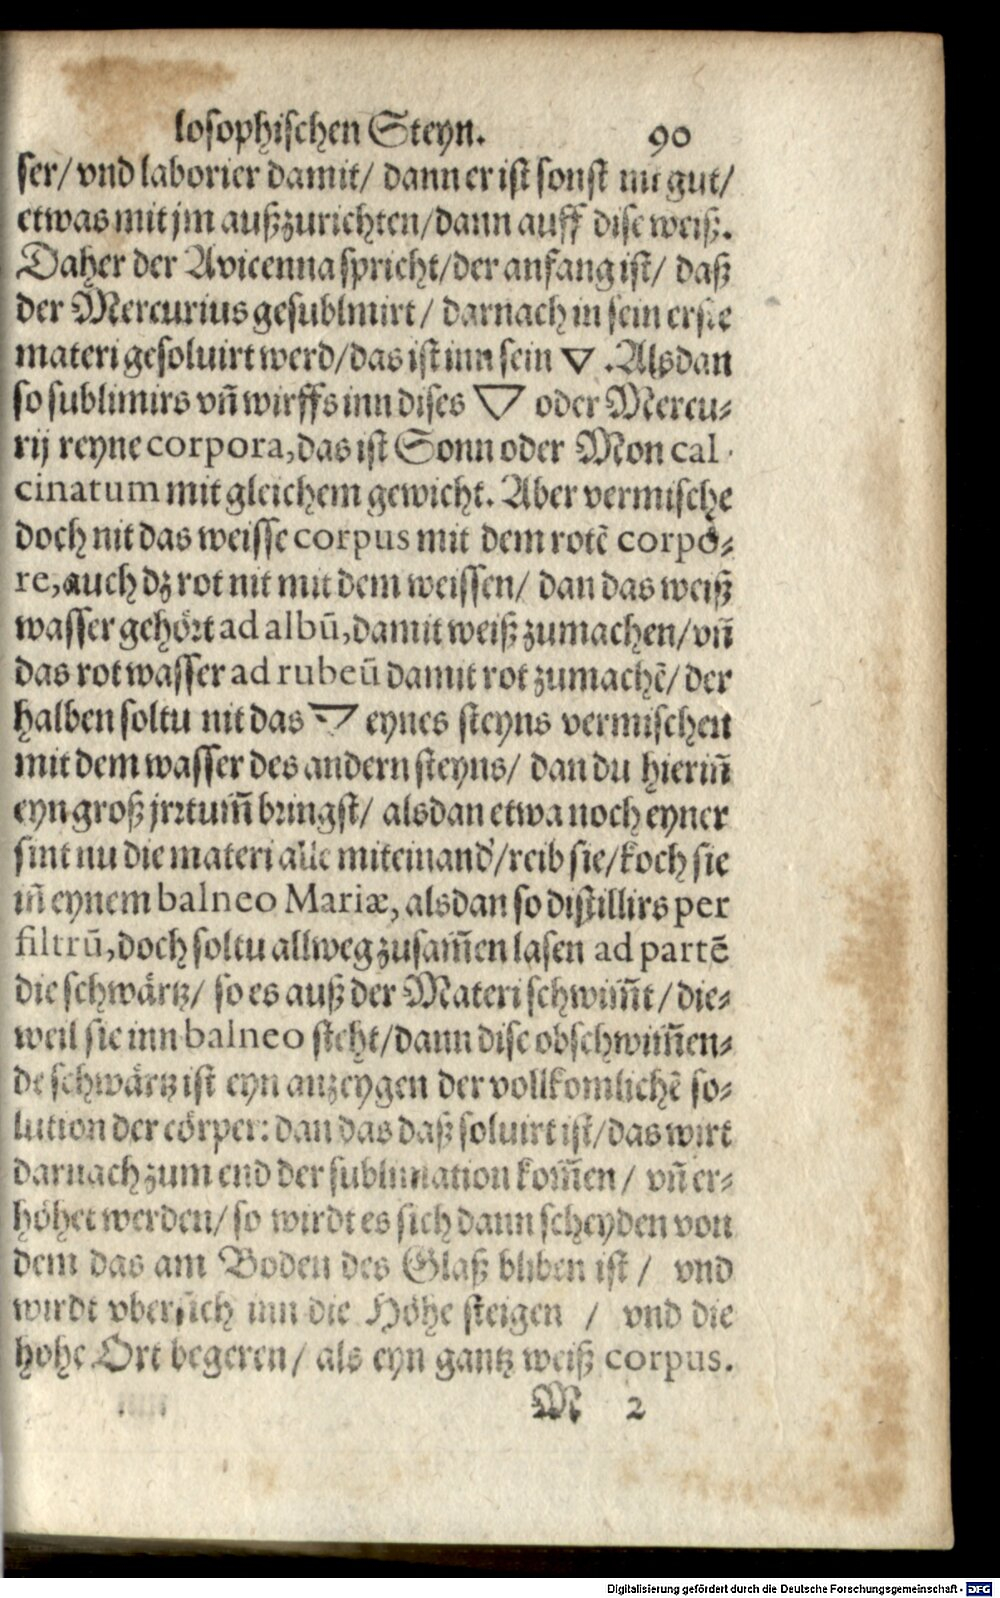 losophischen Steyn. 90
ser/ vnd laborier damit/ dann er ist sonst nit gut/
etwas mit jm außzurichten/dann auff dise weiß.
Daher der Avicenna spricht/der anfang ist/ daß
der Mercurius gesublmirt/ darnach in sein erste
materi gesoluirt werd/das ist inn sein ▽ .Alsdan
so sublimirs vñ wirffs inn dises ▽ oder Mercu⸗
rij reyne corpora,das ist Sonn oder Mon cal⸗
cinatum mit gleichem gewicht. Aber vermische
doch nit das weisse corpus mit dem rotẽ corpo⸗
re,auch dz rot nit mit dem weissen/ dan das weiß
wasser gehört ad albũ,damit weiß zumachen/vñ
das rot wasser ad rubeũ damit rot zumachẽ/ der
halben soltu nit das ▽ eynes steyns vermischen
mit dem wasser des andern steyns/ dan du hierin̄
eyn groß jrrtum̃ bringst/ alsdan etwa noch eyner
sint nu die materi alle miteinand’/reib sie/koch sie
iñ eynem balneo Mariæ, alsdan so distillirs per
filtrũ,doch soltu allweg zusam̃en lasen ad partẽ
die schwärtz/ so es auß der Materi schwim̃t/ die⸗
weil sie inn balneo steht/dann dise obschwim̃en⸗
de schwärtz ist eyn anzeygen der vollkomlichẽ so⸗
lution der cörper: dan das daß soluirt ist/das wirt
darnach zum end der sublimation kom̃en/ vñ er⸗
höhet werden/ so wirdt es sich dann scheyden von
dem das am Boden des Glaß bliben ist/ vnd
wirdt vbersich inn die Höhe steigen / vnd die
hohe Ort begeren/ als eyn gantz weiß corpus.
M 2
Digitalisierung gefördert durch die Deutsche Forschungsgemeinschaft - DFG